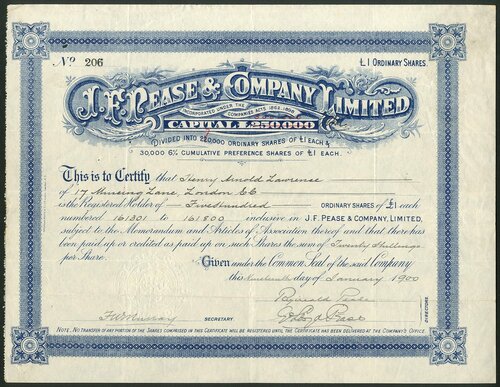 No. 206
£1 ORDINARY SHARES.
J. F. PEASE & COMPANY LIMITED
INCORPORATED UNDER THE COMPANIES ACTS 1862-1898
CAPITAL £250,000
DIVIDED INTO 220,000 ORDINARY SHARES OF £1 EACH &
30,000 6% CUMULATIVE PREFERENCE SHARES OF £1 EACH.
This is to Certify that Henry Arnold Lawrence
of 17 Mincing Lane, London E.C.
is the Registered Holder of Five hundred ORDINARY SHARES OF £1 each
numbered 161301 to 161800 inclusive in J. F. PEASE & COMPANY, LIMITED,
subject to the Memorandum and Articles of Association thereof and that there has
been paid up or credited as paid up on such Shares the sum of Twenty Shillings
per Share.
Given under the Common Seal of the said Company
this Nineteenth day of January 1900
Reginald Pease
F W Murray SECRETARY. Pease DIRECTORS
NOTE. NO TRANSFER OF ANY PORTION OF THE SHARES COMPRISED IN THIS CERTIFICATE WILL BE REGISTERED UNTIL THE CERTIFICATE HAS BEEN DELIVERED AT THE COMPANY'S OFFICE.